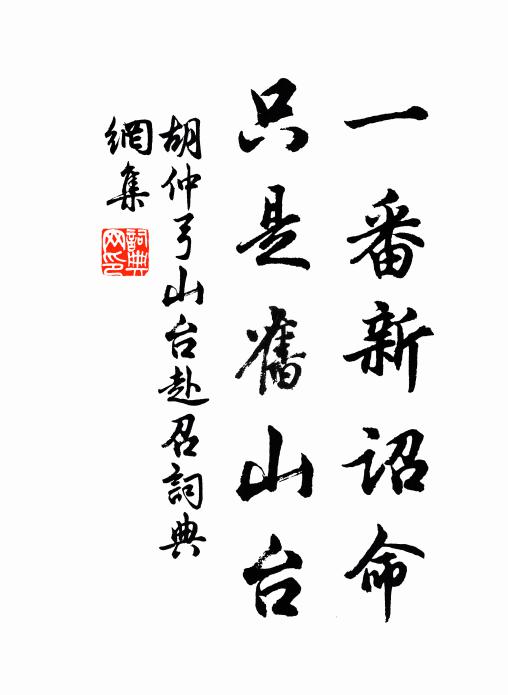 一番新詔命
只是舊山台
胡仲弓山台赴召詞典
網集
詞典網印